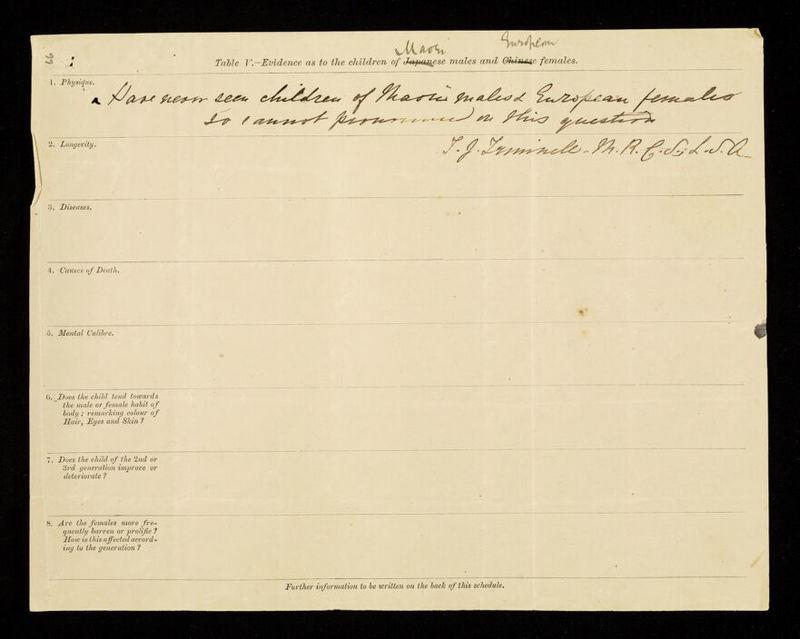 Maori European
Table V.—Evidence as to the children of Japanese males and Chinese females.
1. Physique.
Have never seen children of Maorie males & European females
so cannot on this question
2. Longevity.
T. J. M. R. C. S., L. S. A.
3. Diseases.
4. Causes of Death.
5. Mental Calibre.
6. Does the child tend towards
the male or female habit of
body; remarking colour of
Hair, Eyes and Skin?
7. Does the child of the 2nd or
3rd generation improve or
deteriorate?
8. Are the females more fre-
quently barren or prolific?
How is this affected accord-
ing to the generation?
Further information to be written on the back of this schedule.